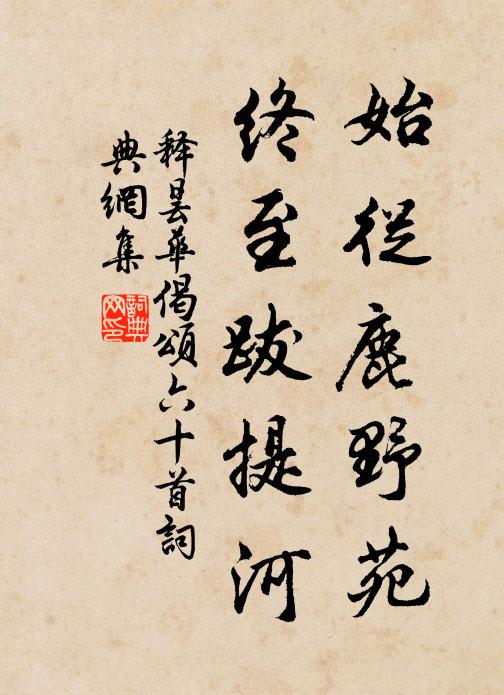 始從鹿野苑
終至跋提河
釋曇華偈頌六十首詞
典網集
詞典
网印